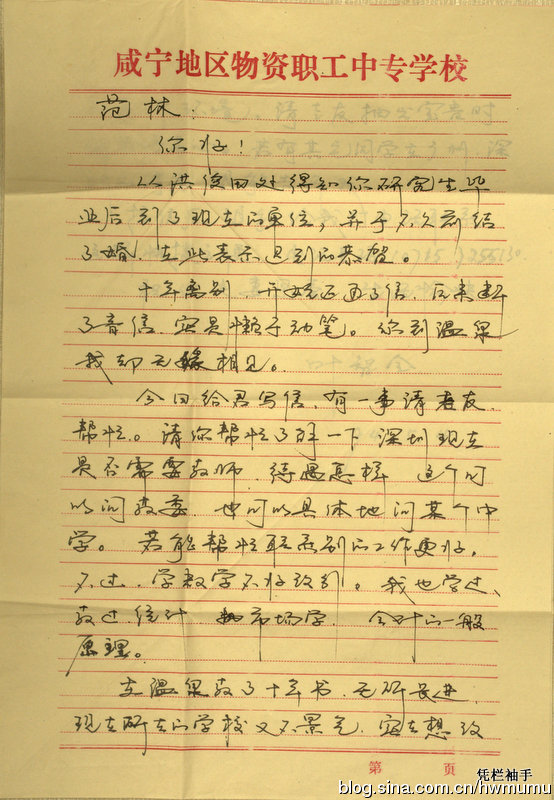 咸宁地区物资职工中专学校
范林：
你好！
从洪俊田处得知你研究生毕
业后到了现在的单位，并于不久前结
了婚，在此表示迟到的恭贺。
十年离别，开始还通了信，后来断
了音信，实是懒于动笔。你到温泉
我却无缘相见。
今日给君写信，有一事请老友
帮忙。请你帮忙了解一下深圳现在
是否需要教师，待遇怎样，这个可
以问教委，也可以具体地问某个中
学。若能帮忙联系别的工作更好，
不过，学数学不好改行。我也学过、
教过统计 和市场学，会计的一般
原理。
在温泉教了十年书，无所长进，
现在所在的学校又不景气，实在想改
第 页
凭栏袖手
blog.sina.com.cn/hwmumu